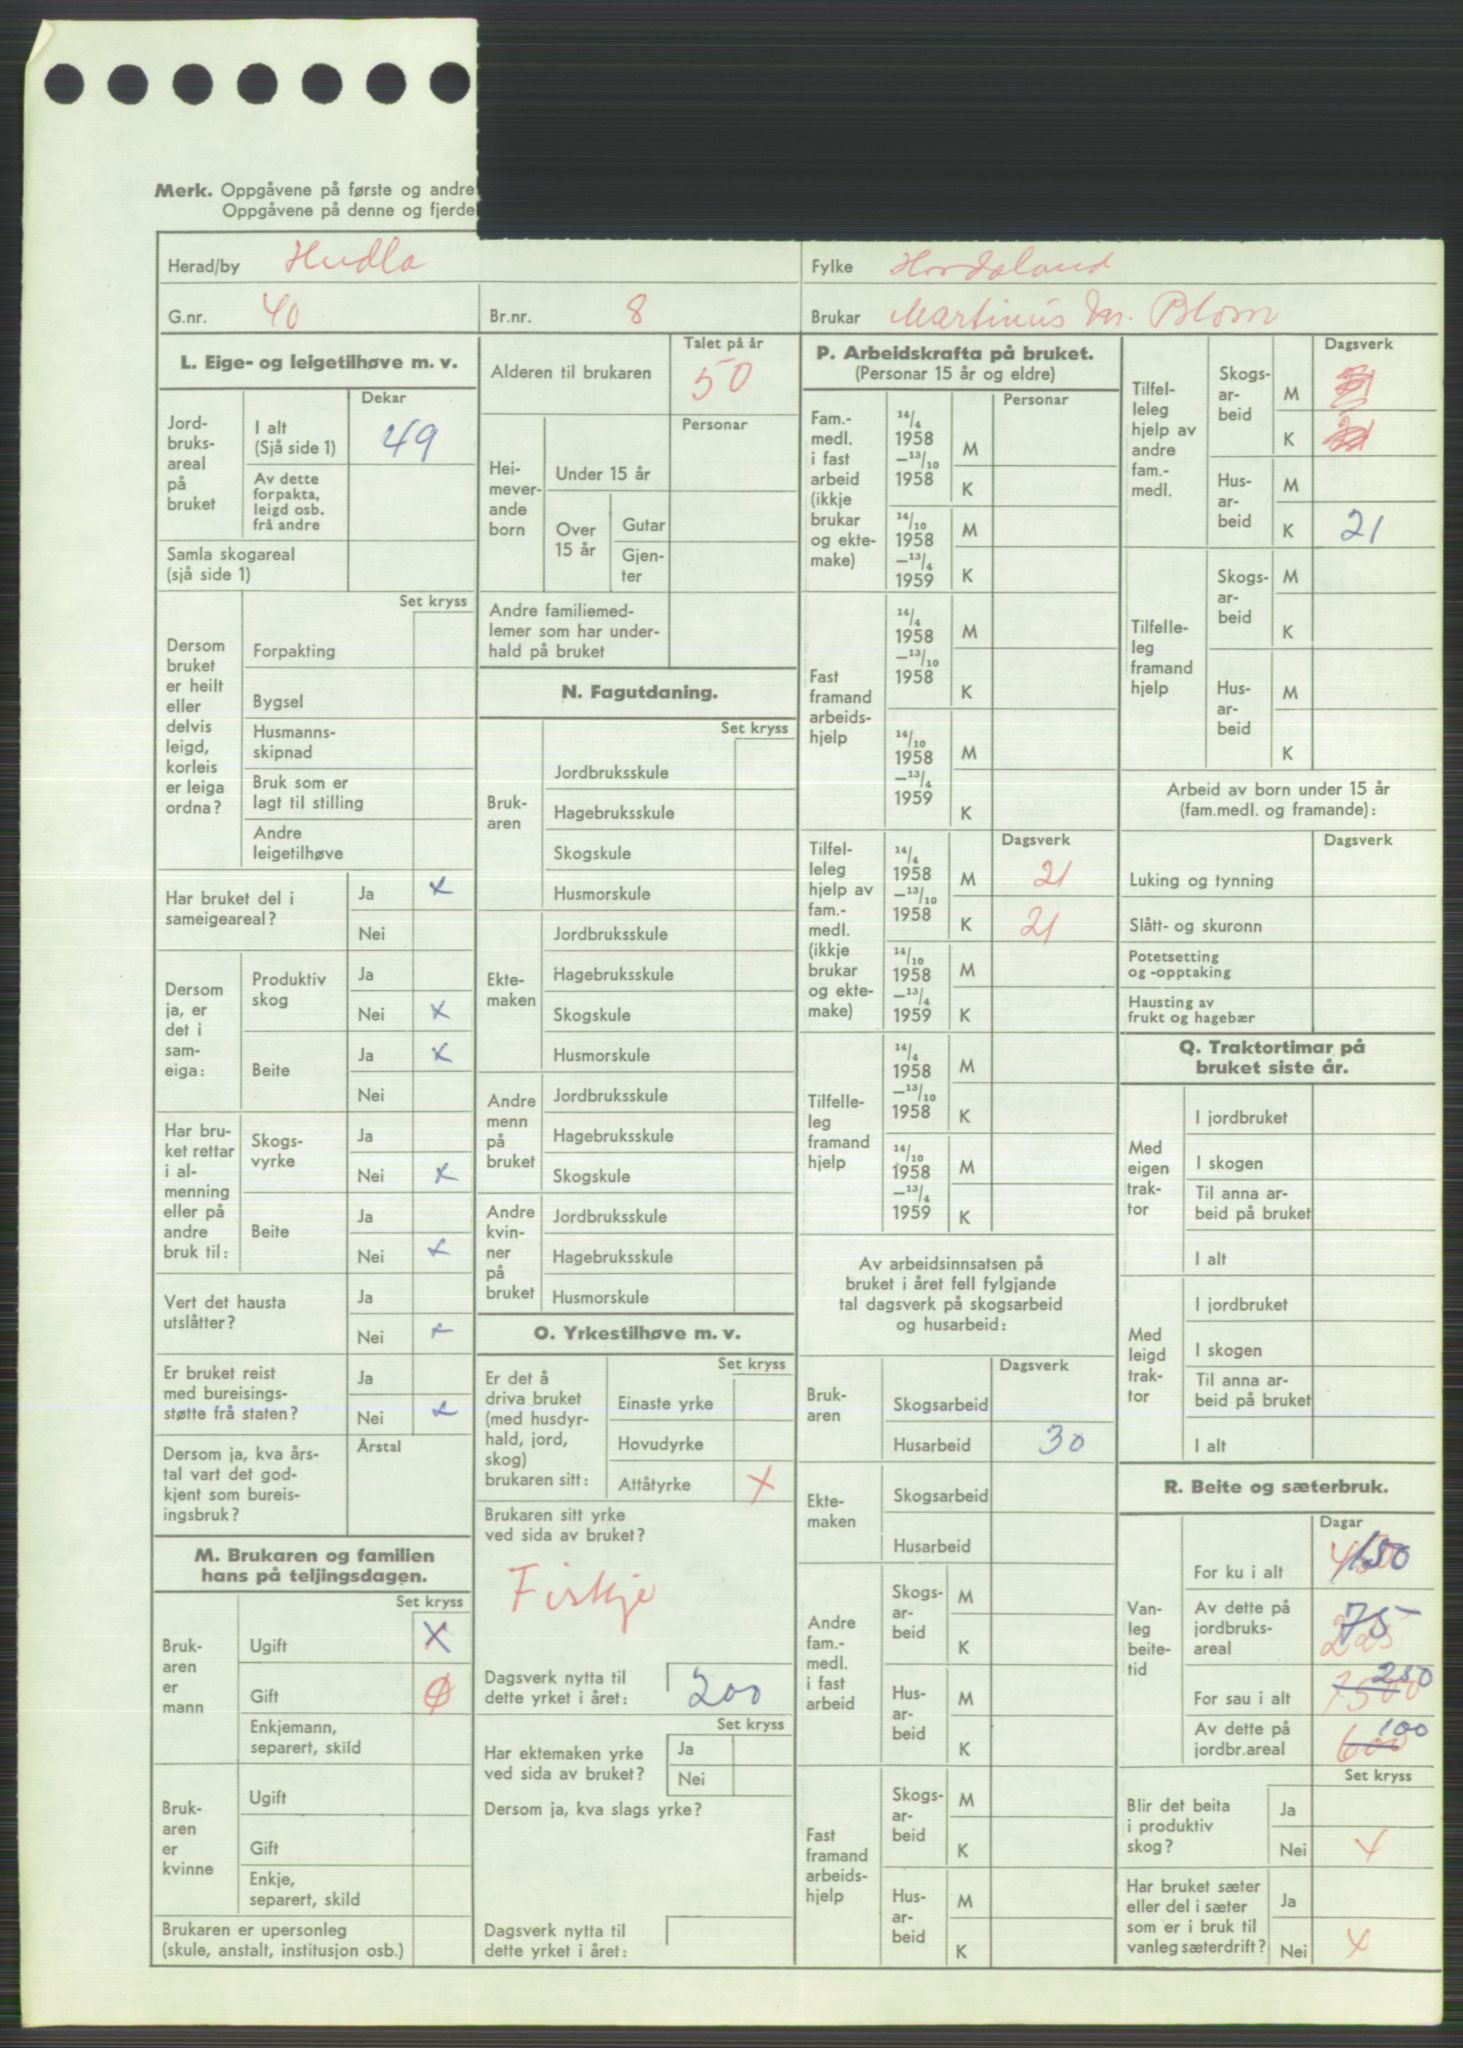 Merk. Oppgåvene på første og andre
Oppgåvene på denne og fjerde
Herad/by Hudla
Fylke Hordaland
G.nr. 40
Br.nr. 8
Brukar Martinius M. Blom
L. Eige- og leigetilhøve m. v.
Dekar
Jord-
bruks-
areal
på
bruket
I alt
(Sjå side 1) 49
Av dette
forpakta,
leigd osb.
frå andre
Samla skogareal
(sjå side 1)
Set kryss
Dersom
bruket
er heilt
eller
delvis
leigd,
korleis
er leiga
ordna?
Forpakting
Bygsel
Husmanns-
skipnad
Bruk som er
lagt til stilling
Andre
leigetilhøve
Har bruket del i
sameigeareal?
Ja x
Nei
Dersom
ja, er
det i
sam-
eiga:
Produktiv
skog
Ja
Nei x
Beite
Ja x
Nei
Har bru-
ket rettar
i al-
menning
eller på
andre
bruk til:
Skogs-
vyrke
Ja
Nei x
Beite
Ja
Nei x
Vert det hausta
utslåtter?
Ja
Nei x
Er bruket reist
med bureisings-
støtte frå staten?
Ja
Nei x
Dersom ja, kva års-
tal vart det god-
kjent som bureis-
ingsbruk?
Årstal
M. Brukaren og familien
hans på teljingsdagen.
Set kryss
Bruk-
aren
er
mann
Ugift X
Gift
Enkjemann,
separert, skild
Bruk-
aren
er
kvinne
Ugift
Gift
Enkje,
separert, skild
Brukaren er upersonleg
(skule, anstalt, institusjon osb.)
Talet på år
Alderen til brukaren 50
Personar
Hei-
mever-
ande
born
Under 15 år
Over
15 år
Gutar
Gjen-
ter
Andre familiemed-
lemer som har under-
hald på bruket
N. Fagutdaning.
Set kryss
Bruk-
aren
Jordbruksskule
Hagebruksskule
Skogskule
Husmorskule
Ekte-
maken
Jordbruksskule
Hagebruksskule
Skogskule
Husmorskule
Andre
menn
på
bruket
Jordbruksskule
Hagebruksskule
Skogskule
Andre
kvin-
ner
på
bruket
Jordbruksskule
Hagebruksskule
Husmorskule
O. Yrkestilhøve m. v.
Set kryss
Er det å
driva bruket
(med husdyr-
hald, jord,
skog)
brukaren sitt:
Einaste yrke
Hovudyrke
Attåtyrke X
Brukaren sitt yrke
ved sida av bruket?
Fiskje
Dagsverk nytta til
dette yrket i året: 200
Set kryss
Har ektemaken yrke
ved sida av bruket?
Ja
Nei
Dersom ja, kva slags yrke?
Dagsverk nytta til
dette yrket i året:
P. Arbeidskrafta på bruket.
(Personar 15 år og eldre)
Personar
Fam.-
medl.
i fast
arbeid
(ikkje
brukar
og ekte-
make)
14/4
1958
—13/10
1958
M
K
14/10
1958
—13/4
1959
M
K
Fast
framand
arbeids-
hjelp
14/4
1958
—13/10
1958
M
K
14/10
1958
—13/4
1959
M
K
Dagsverk
Tilfel-
leleg
hjelp av
fam.-
medl.
(ikkje
brukar
og ekte-
make)
14/4
1958
—13/10
1958
M 21
K 21
14/10
1958
—13/4
1959
M
K
Tilfelle-
leg
framand
hjelp
14/4
1958
—13/10
1958
M
K
14/10
1958
—13/4
1959
M
K
Av arbeidsinnsatsen på
bruket i året fell fylgjande
tal dagsverk på skogsarbeid
og husarbeid:
Dagsverk
Bruk-
aren
Skogsarbeid
Husarbeid 30
Ekte-
maken
Skogsarbeid
Husarbeid
Andre
fam.-
medl.
i fast
arbeid
Skogs-
ar-
beid
M
K
Hus-
ar-
beid
M
K
Fast
framand
arbeids-
hjelp
Skogs-
ar-
beid
M
K
Hus-
ar-
beid
M
K
Dagsverk
Tilfel-
leleg
hjelp av
andre
fam.-
medl.
Skogs-
ar-
beid
M
K
Hus-
ar-
beid
M
K 21
Tilfelle-
leg
framand
hjelp
Skogs-
ar-
beid
M
K
Hus-
ar-
beid
M
K
Arbeid av born under 15 år
(fam.medl. og framande):
Dagsverk
Luking og tynning
Slått- og skuronn
Potetsetting
og -opptaking
Hausting av
frukt og hagebær
Q. Traktortimar på
bruket siste år.
Med
eigen
trak-
tor
I jordbruket
I skogen
Til anna ar-
beid på bruket
I alt
Med
leigd
trak-
tor
I jordbruket
I skogen
Til anna ar-
beid på bruket
I alt
R. Beite og sæterbruk.
Dagar
Van-
leg
beite-
tid
For ku i alt 150
Av dette på
jordbruks-
areal 75 225
For sau i alt 250 7500
Av dette på
jordbr.areal 100 600
Set kryss
Blir det beita
i produktiv
skog?
Ja
Nei x
Har bruket sæter
eller del i sæter
som er i bruk til
vanleg sæterdrift?
Ja
Nei x